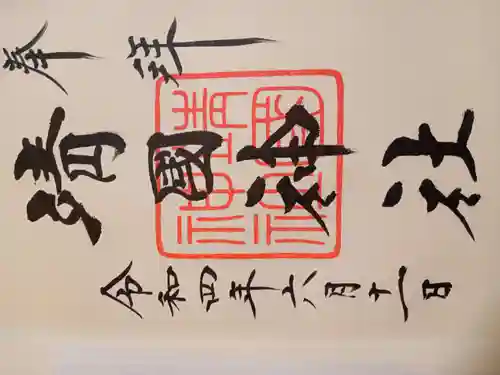 奉拝
靖國神社
令和四年六月十一日